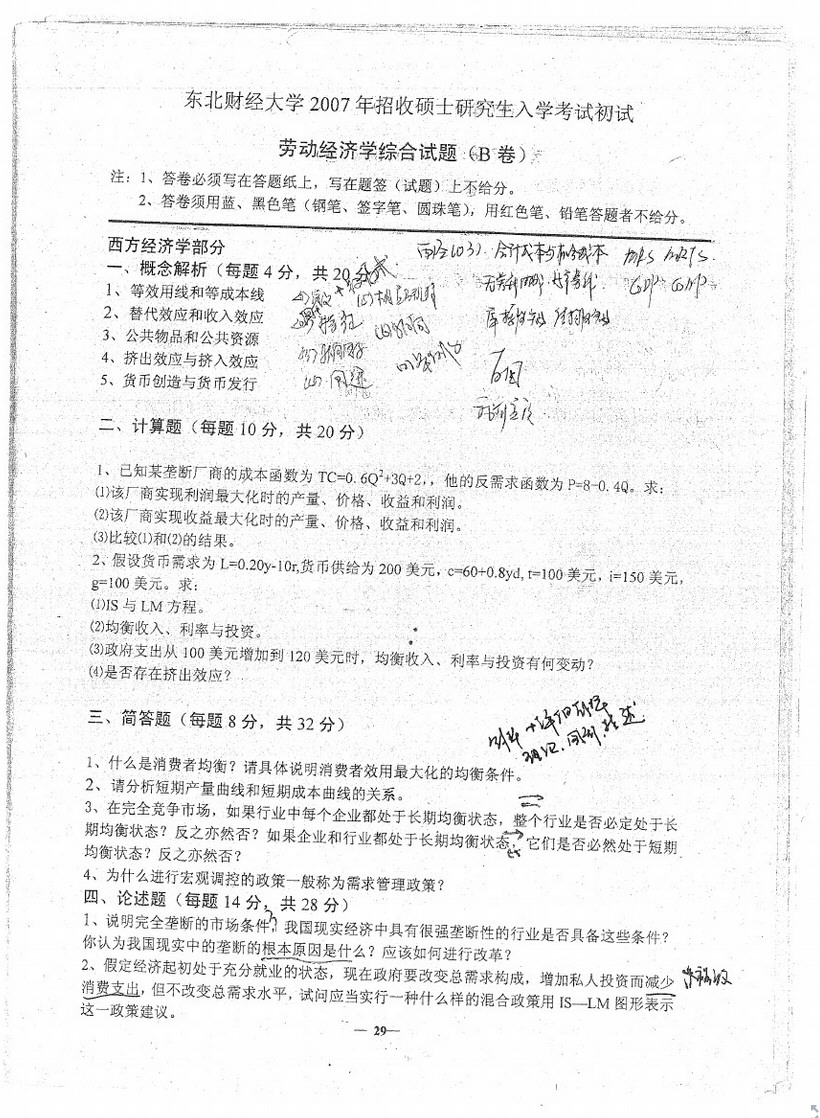 东北财经大学 2007 年招收硕士研究生入学考试初试
劳动经济学综合试题（B 卷）
注：1、答卷必须写在答题纸上，写在题签（试题）上不给分。
2、答卷须用蓝、黑色笔（钢笔、签字笔、圆珠笔），用红色笔、铅笔答题者不给分。
西方经济学部分
一、概念解析（每题 4 分，共 20 分）
1、等效用线和等成本线
2、替代效应和收入效应
3、公共物品和公共资源
4、挤出效应与挤入效应
5、货币创造与货币发行
MRS MRTS
GDP GNP
二、计算题（每题 10 分，共 20 分）
1、已知某垄断厂商的成本函数为 TC=0.6Q²+3Q+2,，他的反需求函数为 P=8-0.4Q。求：
⑴该厂商实现利润最大化时的产量、价格、收益和利润。
⑵该厂商实现收益最大化时的产量、价格、收益和利润。
⑶比较⑴和⑵的结果。
2、假设货币需求为 L=0.20y-10r,货币供给为 200 美元，c=60+0.8yd, t=100 美元，i=150 美元，
g=100 美元。求：
⑴IS 与 LM 方程。
⑵均衡收入、利率与投资。
⑶政府支出从 100 美元增加到 120 美元时，均衡收入、利率与投资有何变动？
⑷是否存在挤出效应？
三、简答题（每题 8 分，共 32 分）
1、什么是消费者均衡？请具体说明消费者效用最大化的均衡条件。
2、请分析短期产量曲线和短期成本曲线的关系。
3、在完全竞争市场，如果行业中每个企业都处于长期均衡状态，整个行业是否必定处于长
期均衡状态？反之亦然否？如果企业和行业都处于长期均衡状态，它们是否必然处于短期
均衡状态？反之亦然否？
4、为什么进行宏观调控的政策一般称为需求管理政策？
四、论述题（每题 14 分，共 28 分）
1、说明完全垄断的市场条件，我国现实经济中具有很强垄断性的行业是否具备这些条件？
你认为我国现实中的垄断的根本原因是什么？应该如何进行改革？
2、假定经济起初处于充分就业的状态，现在政府要改变总需求构成，增加私人投资而减少
消费支出，但不改变总需求水平，试问应当实行一种什么样的混合政策用 IS—LM 图形表示
这一政策建议。
— 29—